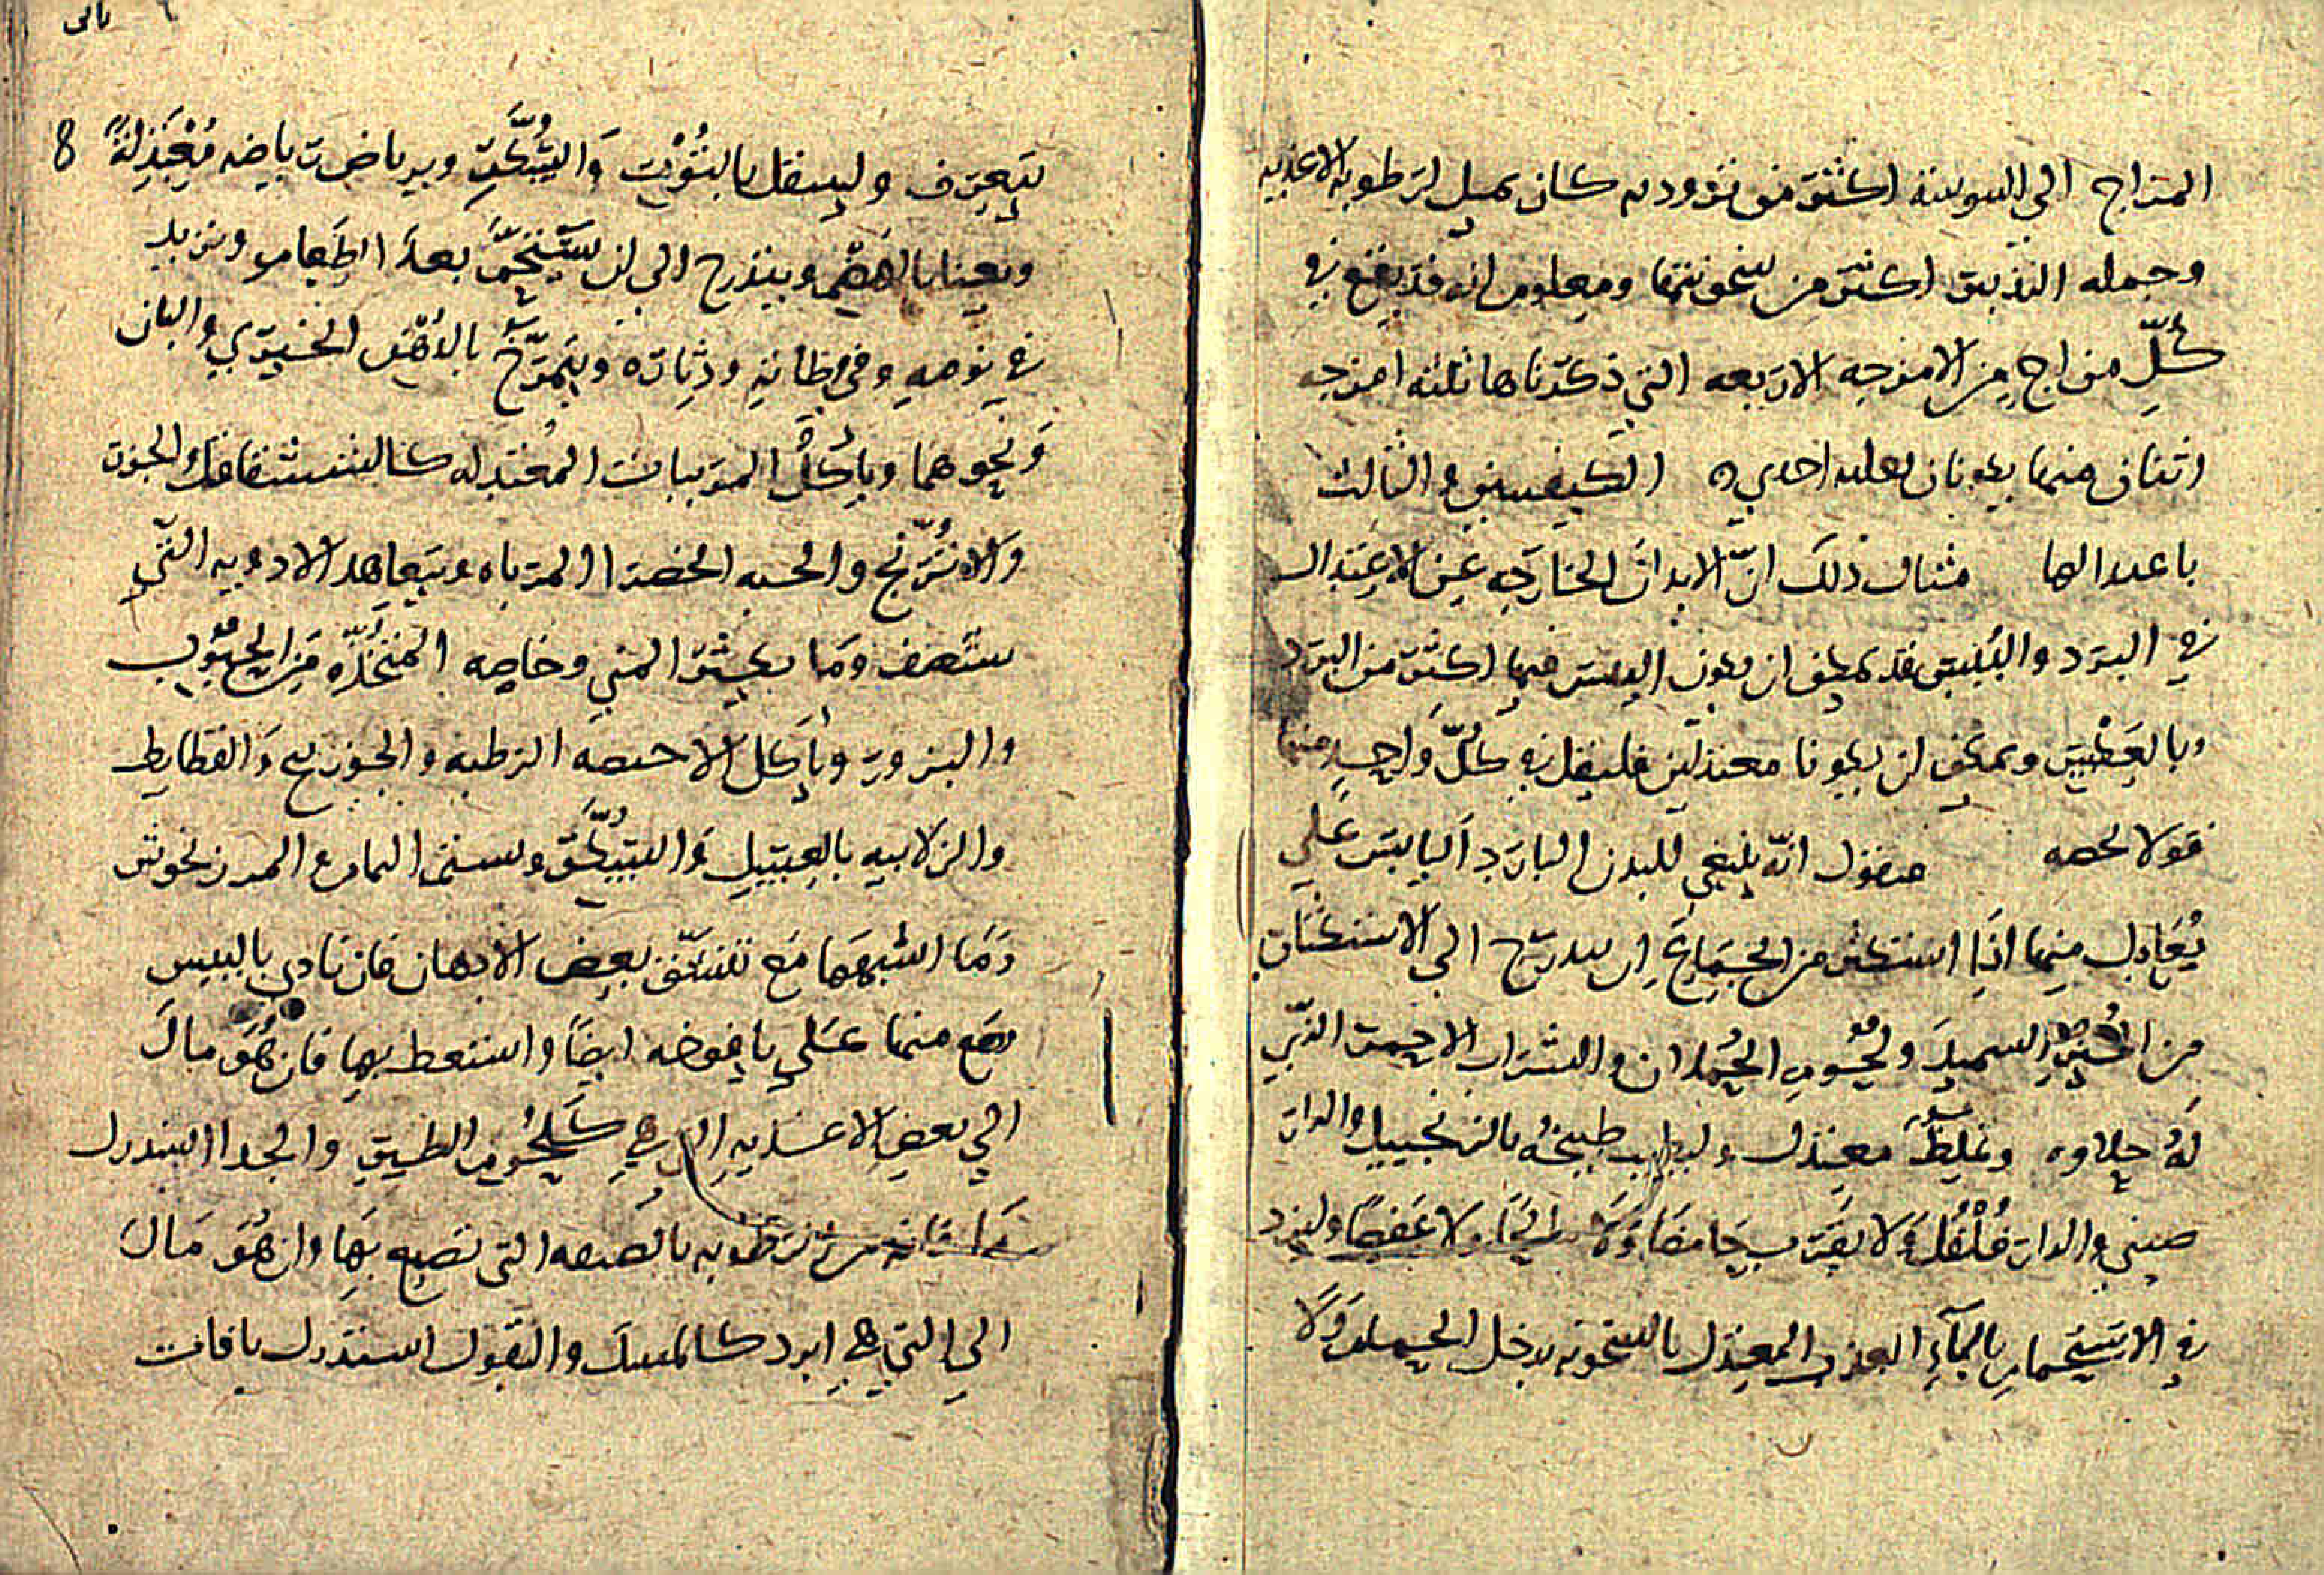 المزاج الي اليبوسة اكثر من بروده كان يميل لرطوبه الاغذيه
وجمله التدبير اكثر من سخونتها ومعلوم انه قد يقع في
كلِّ مزاج من الامزجه الاربعه التي ذكرناها ثلثه امزجه
اثنان منها يكونان بغلبه احدي الكيفيتين والثالث
باعتدالها مثال ذلك انّ الابدان الخارجه عن الاعتدال
في البرد واليبس فقد يمكن ان يكون اليبس فيها اكثر من البرد
وبالعكس ويمكن ان يكونا معتدلين فليقل في كلّ واحد منها
قولا يخصه فنقول انّه ينبغي للبدن البارد اليابس علي
تعادل منها اذا استكثر من الجماع ان يتدرج الي الاستكثار
من الخبز السميد ولحوم الحملان والشراب الاحمر الذي
له حلاوه وغلظ معتدل وليطيب طبيخه بالزنجبيل والدار
صيني والدار فلفل ولا يقرب حامضا ولا مالحا ولا عفصا وليزد
في الاستحمام بالماء العذب المعتدل بالسخونه يدخل الحمام ولا
يتعرف وليتنقل بالتوت والسكر ويرتاض رياضه معتدلة 8
ويعنا بالهضم ويتدرج الي ان يستحم بعد الطعام ويزيد
في نومه وفي وطائه ودثاره ويتمرخ بالدهن الخيري والبان
ونحوهما وياكل المربيات المعتدله كالششقاقل والجزر
والاترنج والحبه الخضرا المرباه ويتعاهد الادويه التي
ستصف وما يكثر المني وخاصه المتخذه من الحبوب
والبزور وياكل الاخبصه الرطبه والجوزينج والقطايف
والزلابيه بالعسل والسكر وسنن المام والمرزنجوش
وما اشبهها مع تنشق بعض الادهان فان تادي باليبس
وضع منها علي يافوخه ايضا واستعط بها فان هو مال
الي بعض الاغذيه التي هي كلحوم الطير والجدا استدرك
ما فاته من ترطوبه بالصنعه التي تصنع بها وان هو مال
الي التي هي ابرد كالسمك والبقول استدرك ما فات